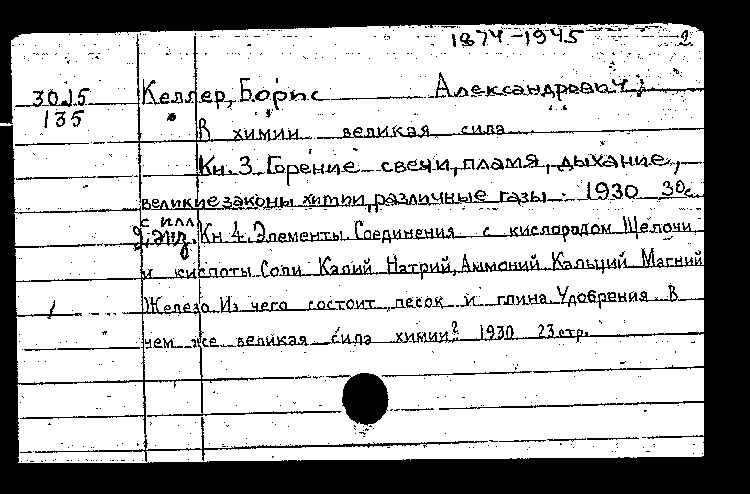 1874-1945 2
3015 Келлер, Борис Александрович;
135
В химии великая сила
Кн. 3. Горение свечи, пламя, дыхание,
великие законы химии, различные газы. 1930 30с.
с илл.
2 экз. Кн 4. Элементы. Соединения с кислородом Щелочи
и кислоты Соли Калий Натрий, Аммоний. Кальций Магний
Железо. Из чего состоит песок и глина. Удобрения. В
чем же великая сила химии? 1930 23 стр.